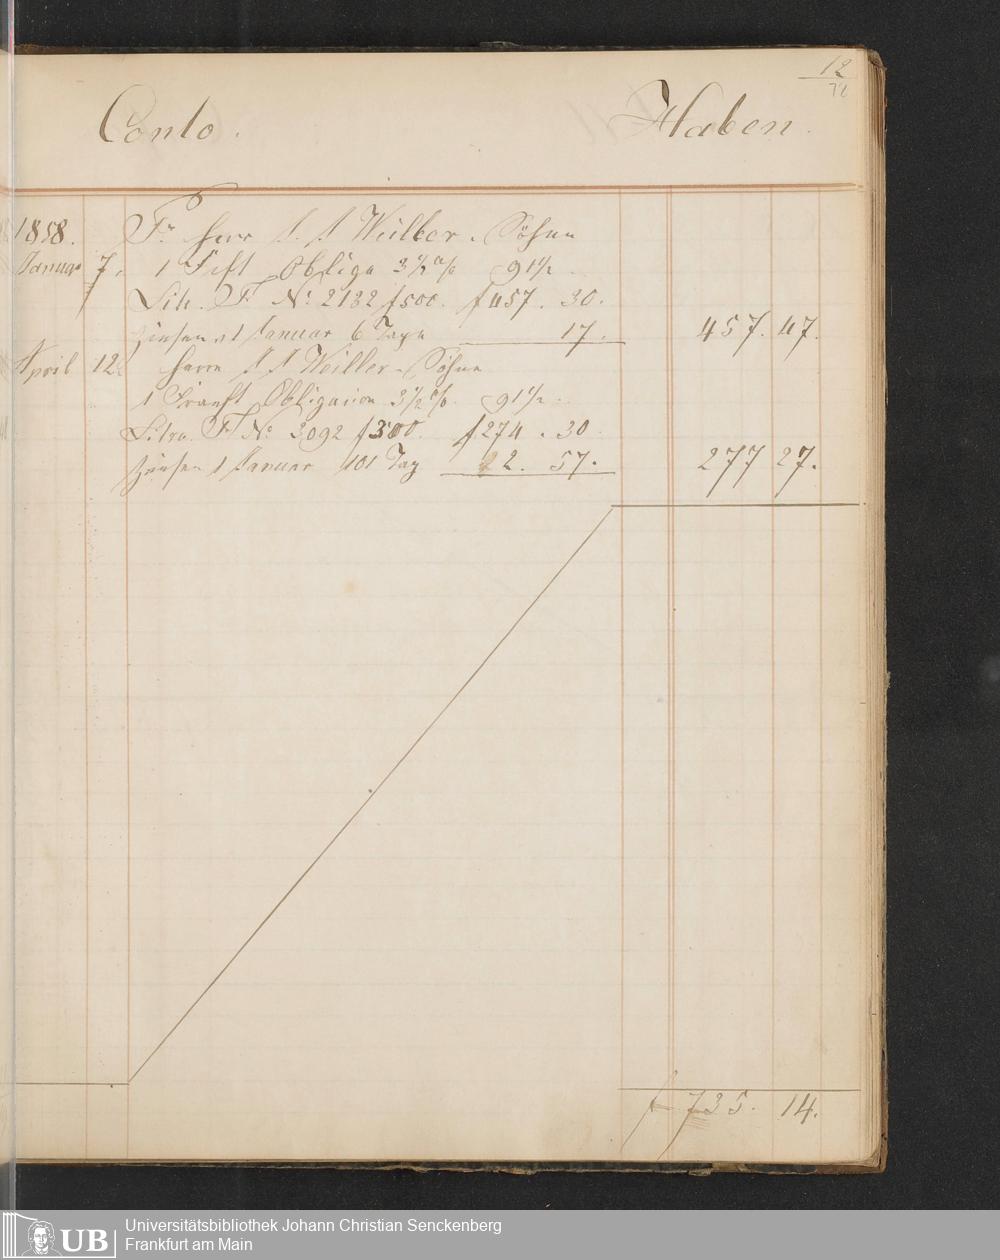 12
Conto. Haben.
1858. Fr. Herr J. J. Weiller. Söhne
Januar 7. 1 Obliga 3½ % 91½
Litr. F. No. 2132 f500. f457. 30.
Zinsen v 1 Januar 6 Tage 17. 457. 47.
April 12 Herrn J J Weiller. Söhne
1 Obligation 3½ %. 91½.
Litra. F No. 3092 f300. f274. 30
Zinsen 1 Januar 101 Tag 2. 57. 277 27.
f 735. 14.
UB Universitätsbibliothek Johann Christian Senckenberg
Frankfurt am Main